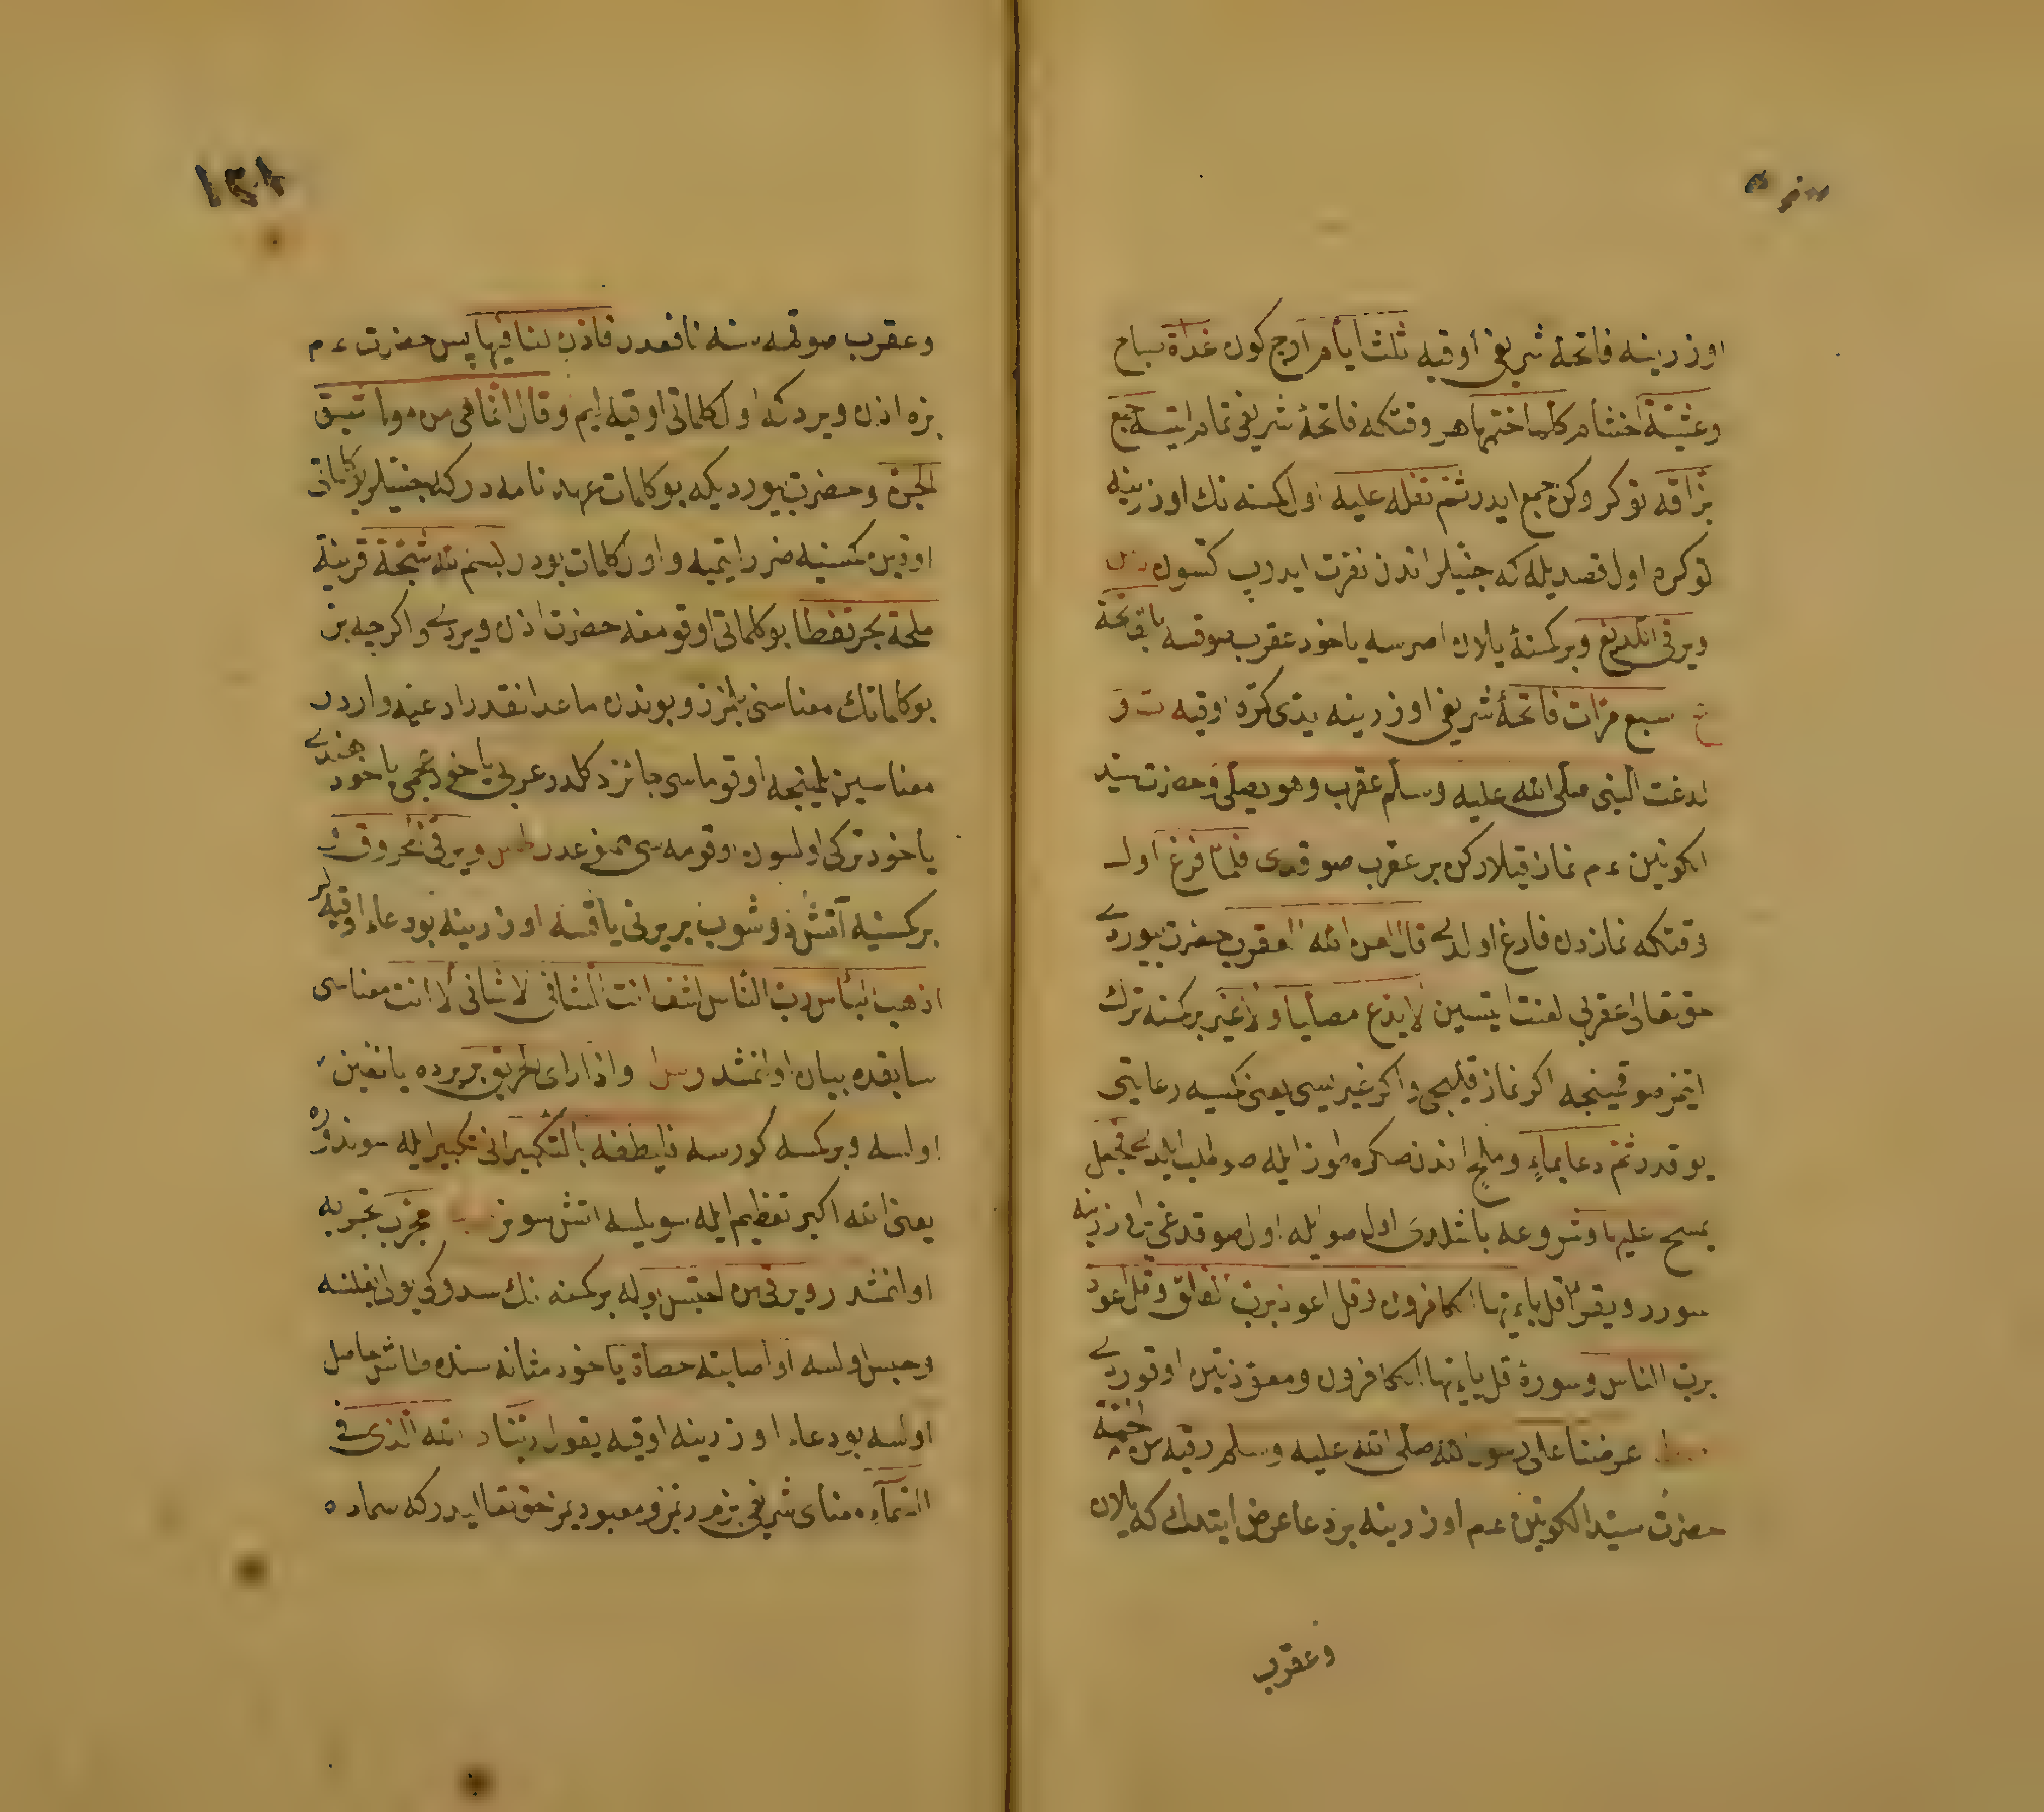 اوزرينه فاتحهٔ شريفى اوقيه ثلث ايام اوج كون غداة صباح
وعشية اخشام كلما ختمها هر وقتكه فاتحهٔ شريفى تمام ايتسه جمع
بزاقه توكركن جمع ايدر ثم تفله عليه اول كمسنه نك اوزرينه
توكره اول قصديله كه جنيلر اندن نفرت ايدوب كتسون
ويرقى اللديغ وبر كمسنهٔ يلان اصرسه ياخود عقرب صوقسه بالفاتحة
سبع مرات فاتحهٔ شريفى اوزرينه يدى كره اوقيه ت و
لدغت النبى صلى الله عليه وسلم عقرب وهو يصلى حضرت سيد
الكونين ءم نماز قيلاركن بر عقرب صوقدى فلما فرغ اول
وقتكه نمازدن فارغ اولدى قال لعن الله العقرب حضرت بيوردى
حق تعالى عقربى لعنت ايتسين لا يدع مصليا ولا غير بر كمسنه ترك
ايتمز صوقمينجه اكر نماز قيليجى واكر غيريسى يعنى كمسيه رعايتى
يوقدر ثم دعا بماء وملح اندن صكره طوز ايله صو طلب ايلدى فجعل
يمسح عليها وشروعه باشلدى اول صو ايله اول صوقدغى اوزرينه
سورر ويقرأ قل ياءيها الكافرون وقل اعوذ برب الفلق وقل اعوذ
برب الناس وسورهٔ قل ياءيها الكافرون ومعوذتين اوقوردى
عرضنا على رسول الله صلى الله عليه وسلم رقية من الحمة
حضرت سيد الكونين ءم اوزرينه بر دعا عرض ايتدك كه يلان
وعقرب
١٢٨
وعقرب صوقمه سنه نافعدر فاذن لنا فيها پس حضرت ءم
بزه اذن ويردى كه اول كلماتى اوقيه لم وقال انما هى من مواثيق
الجن وحضرت بيورديكه بو كلمات عهد نامه در كه جنيلر بو كلماتى
اوقين كمسنيه ضرر ايتميه واول كلمات بودر بسم الله شجة قرنية
ملحة بحر قفطا بو كلماتى اوقومغه حضرت اذن ويردى واكرچه بز
بو كلماتك معناسنى بلمزز وبوندن ماعدا نقدر ادعيه واردر
معناسين بلمينجه اوقوماسى جائز دكلدر عربى ياخود عجمى ياخود هندى
ياخود تركى اولسون اوقومه سى ممنوعدر ويرقى المحروق
بر كمسنيه آتش دوشوب بر يرنى ياقسه اوزرينه بو دعاء اوقيه لر
اذهب البأس رب الناس اشف انت الشافى لا شافى الا انت معناسى
سابقده بيان اولنمشدر واذا راى الحريق بر يرده يانغين
اولسه وبر كمسه كورسه فليطفه بالتكبير انى تكبير ايله سوندره
يعنى الله اكبر تعظيم ايله سويليه اتش سونر مجرب تجربه
اولنمشدر ويرقى من احتبس بوله بر كمسنه نك سدوكى يولى باغلنسه
وحبس اولسه او اصابته حصاة ياخود مثانه سنده طاش حاصل
اولسه بو دعاء اوزرينه اوقيه يقول ربنا الله الذى فى
السماء معناى شريفى بزم ربمز ومعبوديمز حق تعاليدر كه سماده